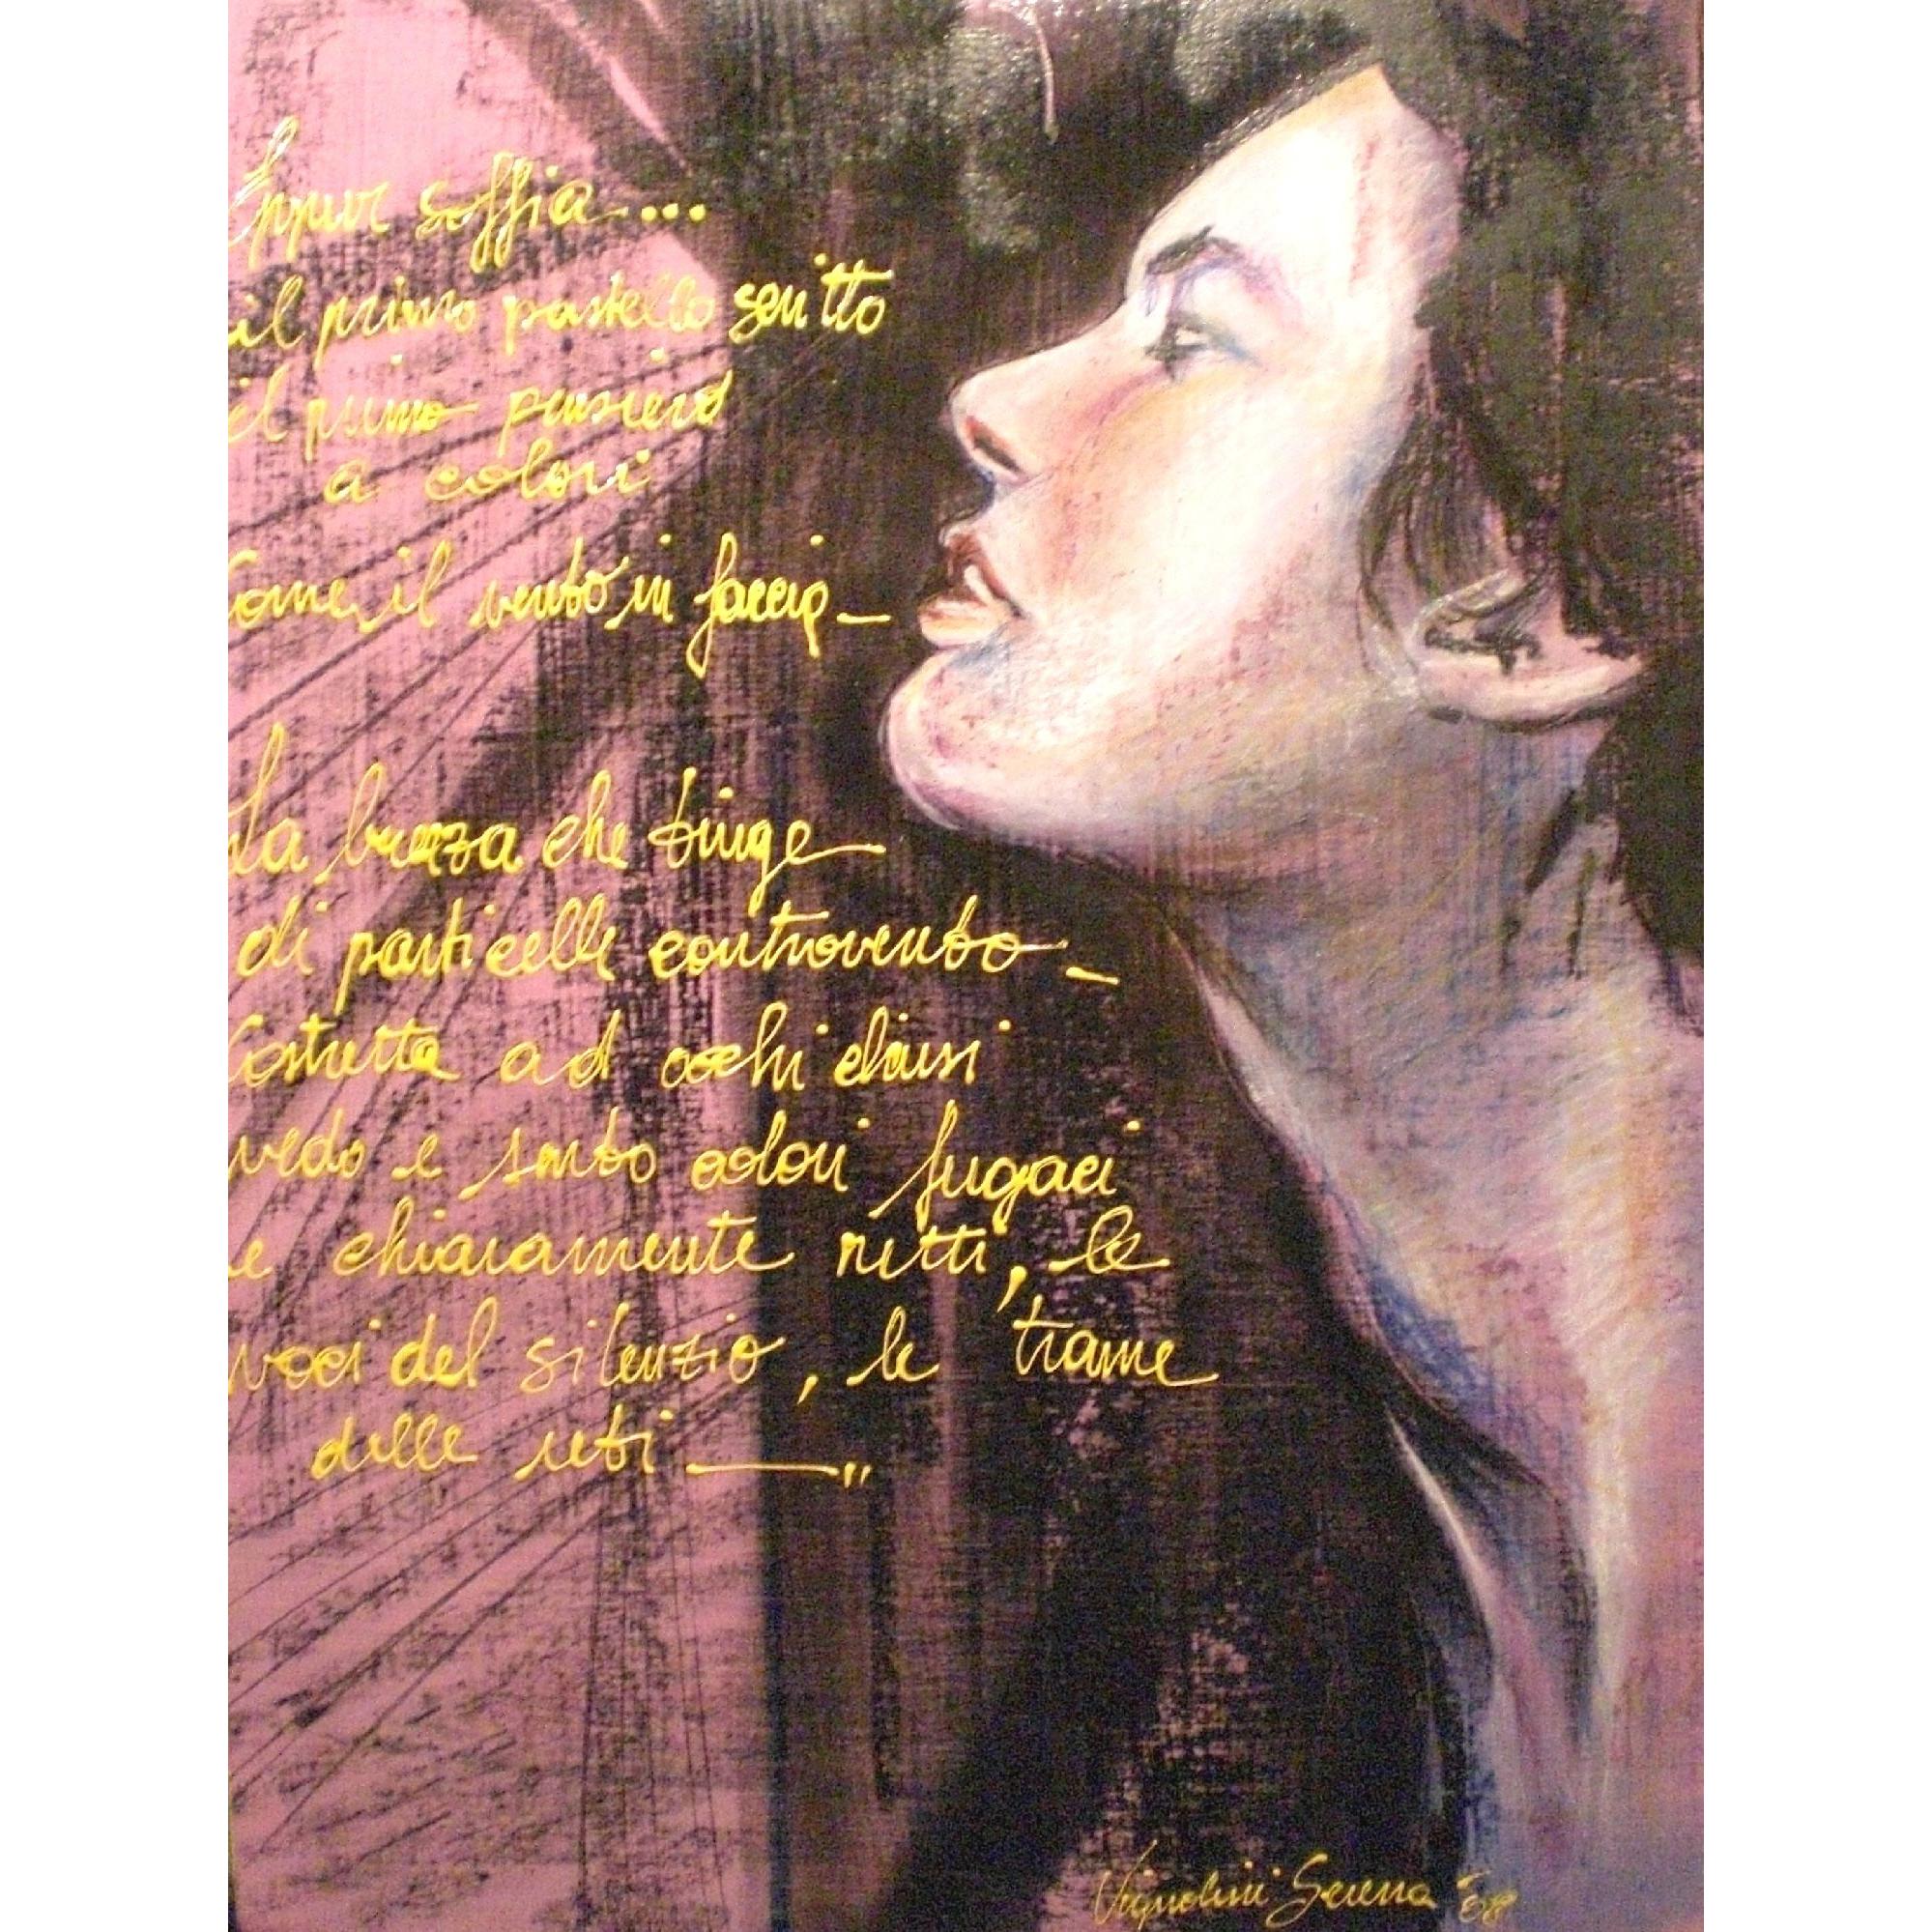 Eppur soffia...
il primo pastello scritto
il primo pensiero
a colori
Come il vento in faccia_
La brezza che tinge
di particelle controvento_
Costretta ad occhi chiusi
vedo e sento odori fugaci
e chiaramente netti, le
voci del silenzio, le trame
delle reti __"
Vignolini Serena '08